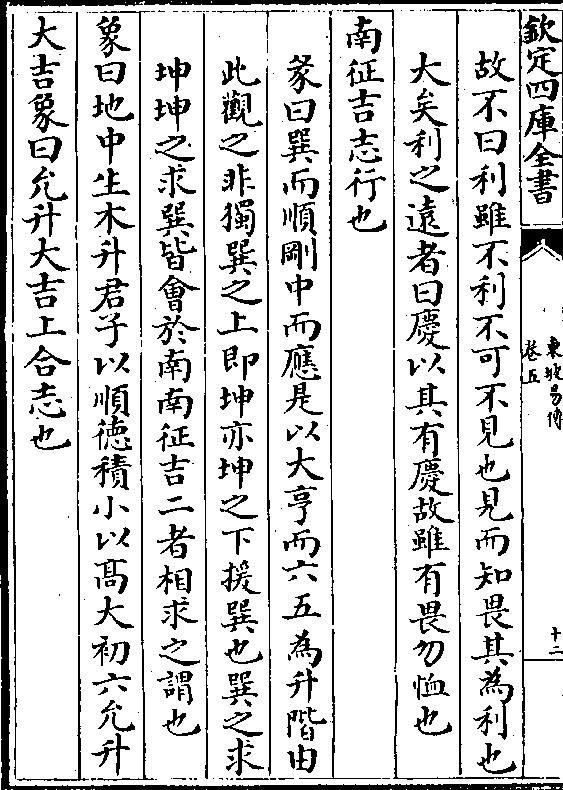 欽定四庫全書
東坡易傳
卷五
十二
故不曰利雖不利不可不見也見而知畏其為利也
大矣利之遠者曰慶以其有慶故雖有畏勿恤也
南征吉志行也
彖曰巽而順剛中而應是以大亨而六五為升階由
此觀之非獨巽之上即坤亦坤之下援巽也巽之求
坤坤之求巽皆會於南南征吉二者相求之謂也
象曰地中生木升君子以順徳積小以髙大初六允升
大吉象曰允升大吉上合志也